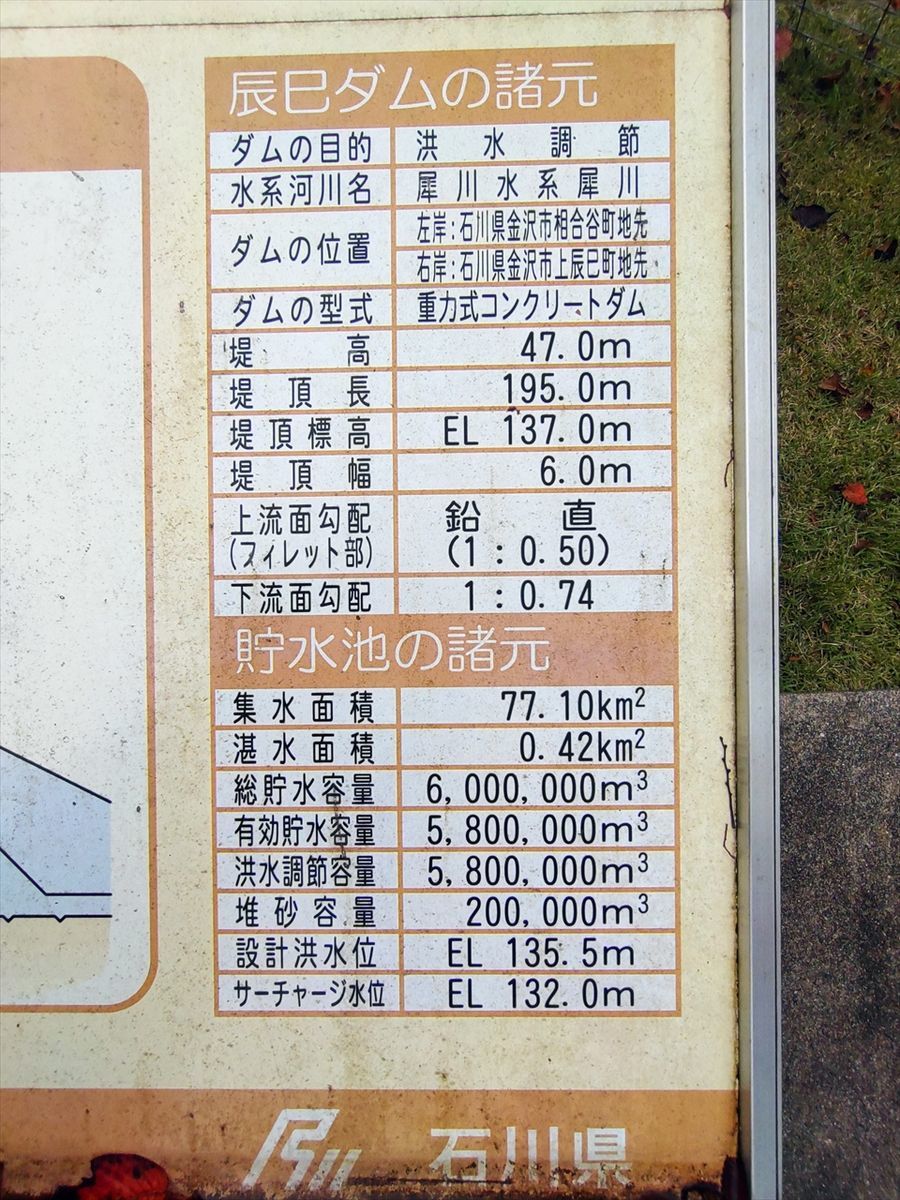 辰巳ダムの諸元
ダムの目的 洪水調節
水系河川名 犀川水系犀川
ダムの位置 左岸:石川県金沢市相合谷町地先
右岸:石川県金沢市上辰巳町地先
ダムの型式 重力式コンクリートダム
堤高 47.0m
堤頂長 195.0m
堤頂標高 EL 137.0m
堤頂幅 6.0m
上流面勾配 鉛直
(フィレット部) (1:0.50)
下流面勾配 1:0.74
貯水池の諸元
集水面積 77.10km²
湛水面積 0.42km²
総貯水容量 6,000,000m³
有効貯水容量 5,800,000m³
洪水調節容量 5,800,000m³
堆砂容量 200,000m³
設計洪水位 EL 135.5m
サーチャージ水位 EL 132.0m
石川県